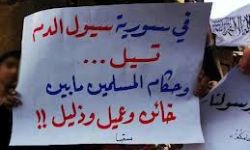 في سورية سيول الدم
تسيل ...
وحكام المسلمين مابين
خائن وعميل وذليل !!